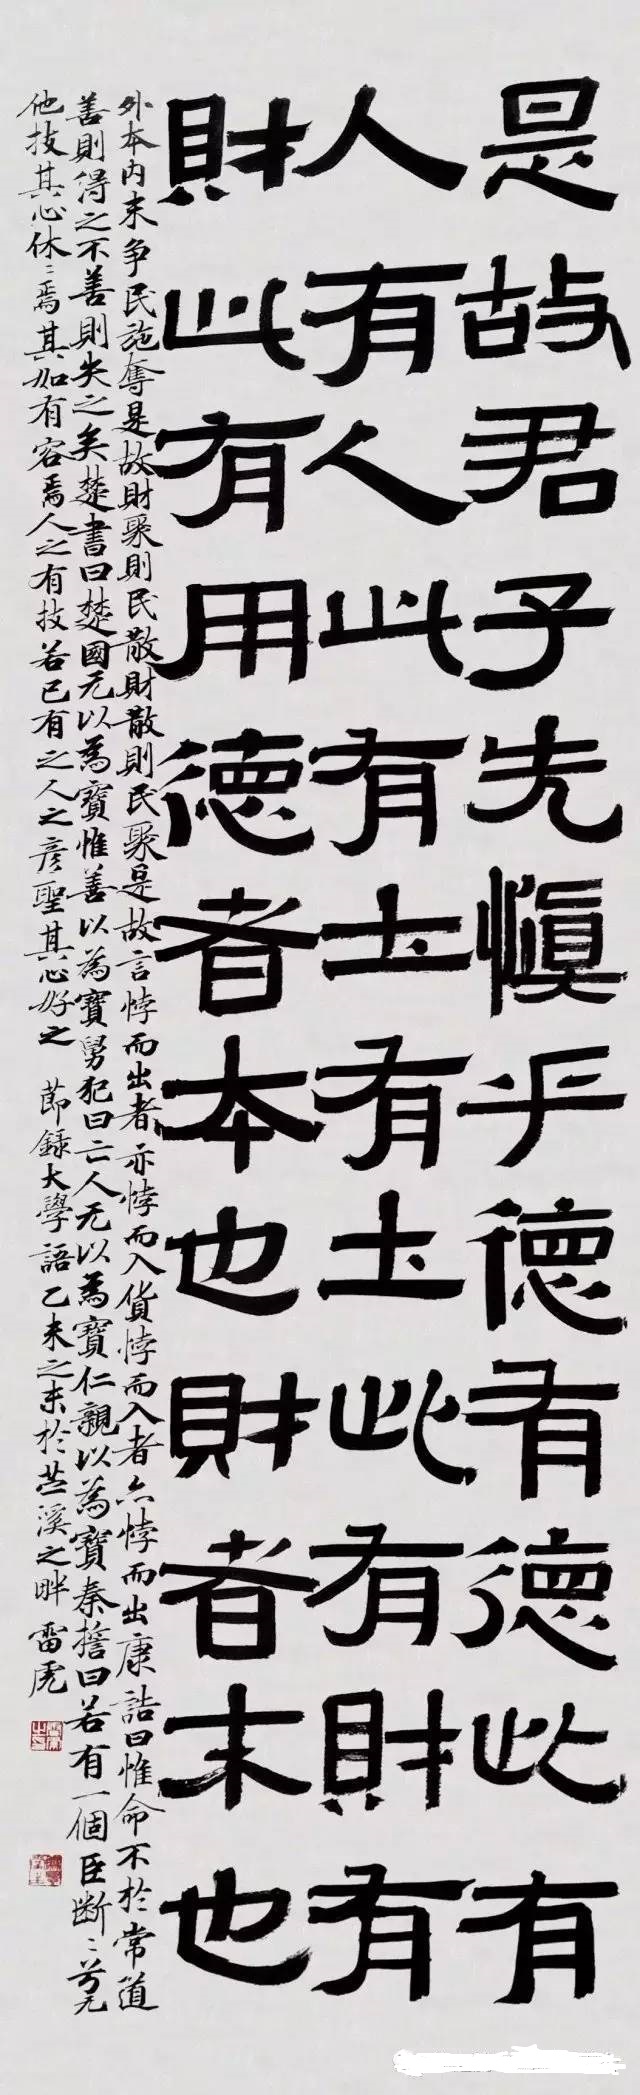 是故君子先慎乎德有德此有
人有人此有土有土此有財有
財此有用德者本也財者末也
外本内末争民施奪是故財聚則民散財散則民聚是故言悖而出者亦悖而入貨悖而入者亦悖而出康誥曰惟命不於常道
善則得之不善則失之矣楚書曰楚國无以為寶惟善以為寶舅犯曰亡人无以為寶仁親以為寶秦誓曰若有一個臣斷〻兮无
他技其心休〻焉其如有容焉人之有技若己有之人之彥聖其心好之 節錄大學語乙未之於苕溪之畔 雷虎